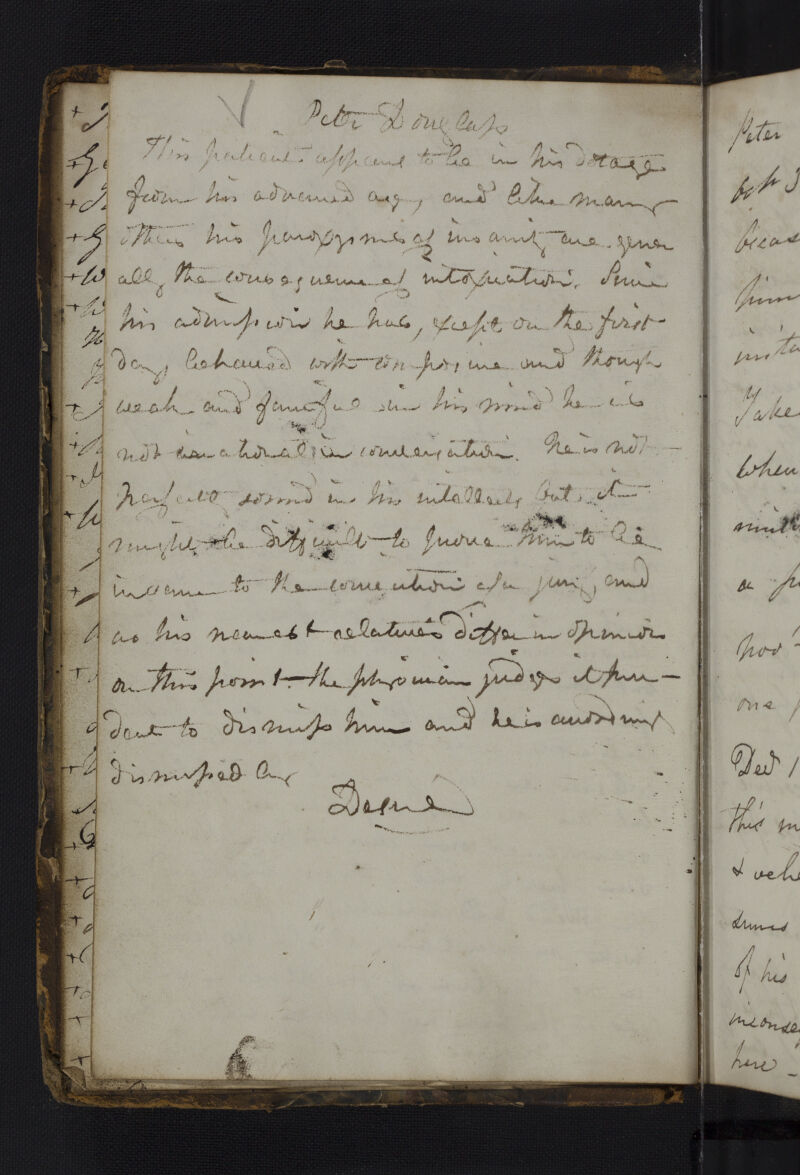 Peter Douglass
This patient appears to be in his dotage
from his advanced age, and like many
others his paroxysms of insanity are gener
ally the consequence of intoxication. Since
his admission he has, except on the first
day, behaved with composure and though
weak and fanciful in his mind he is
not irrational in conversation. He is not
perfectly sound in his intellects but it
might be difficult to prove him to be
insane to the conviction of a jury, and
as his nearest relatives differ in opinion
on this point the physician judges it pru-
dent to dismiss him and he is according
dismissed by
Desire
Peter
becas
him
Take
when
a
one
Ded 1
this m
of his
here